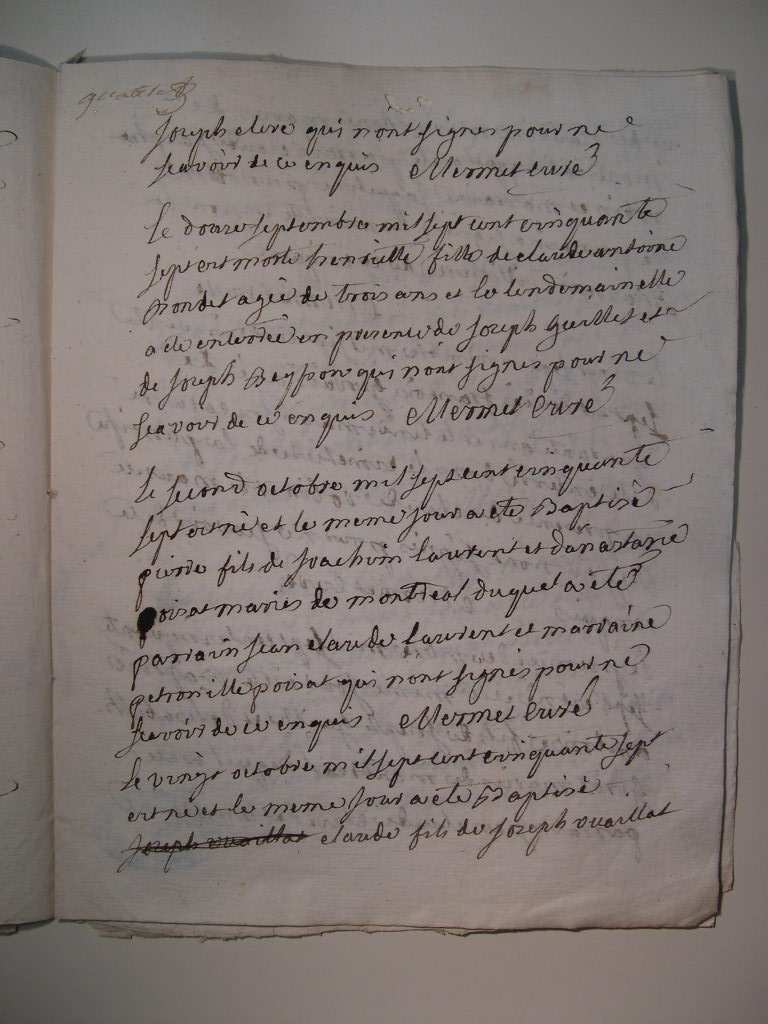 Joseph clere qui n'ont signes pour ne
scavoir de ce enquis Mermet curé
le douze septembre mil sept cent cinquante
sept est morte henriette fille de claude antoine
Rondet agée de trois ans et le lendemain elle
a ete enterrée en presence de Joseph Guillet et
de Joseph Beysson qui n'ont signes pour ne
scavoir de ce enquis Mermet curé
le second octobre mil sept cent cinquante
sept est né et le meme jour a ete Baptisé
pierre fils de Joachim laurent et d'anastasie
poisat mariés de montreal duquel a été
parrain Jean claude laurent et marraine
petronille poisat qui n'ont signés pour ne
scavoir de ce enquis Mermet curé
le vingt octobre mil sept cent cinquante sept
est né et le meme jour a ete Baptisé
Joseph vuaillat claude fils de Joseph vuaillat